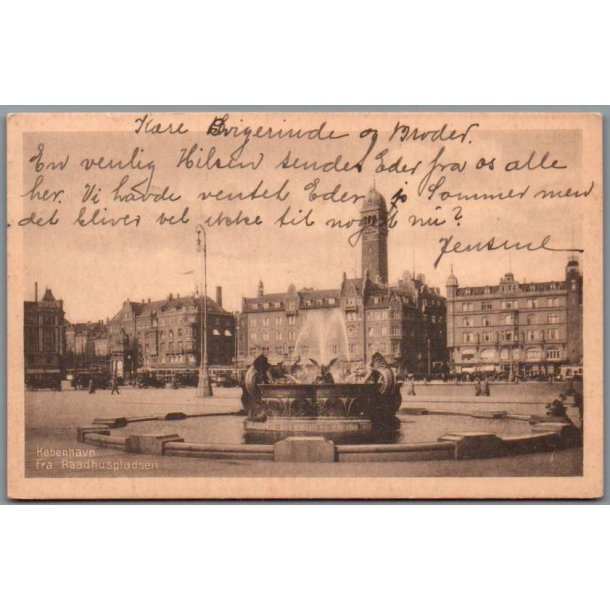 Kære Svigerinde og Broder.
En venlig Hilsen sendes Eder fra os alle
her. Vi havde ventet Eder i Sommer men
det bliver vel ikke til noget nu?
Jensine
København
Fra Raadhuspladsen